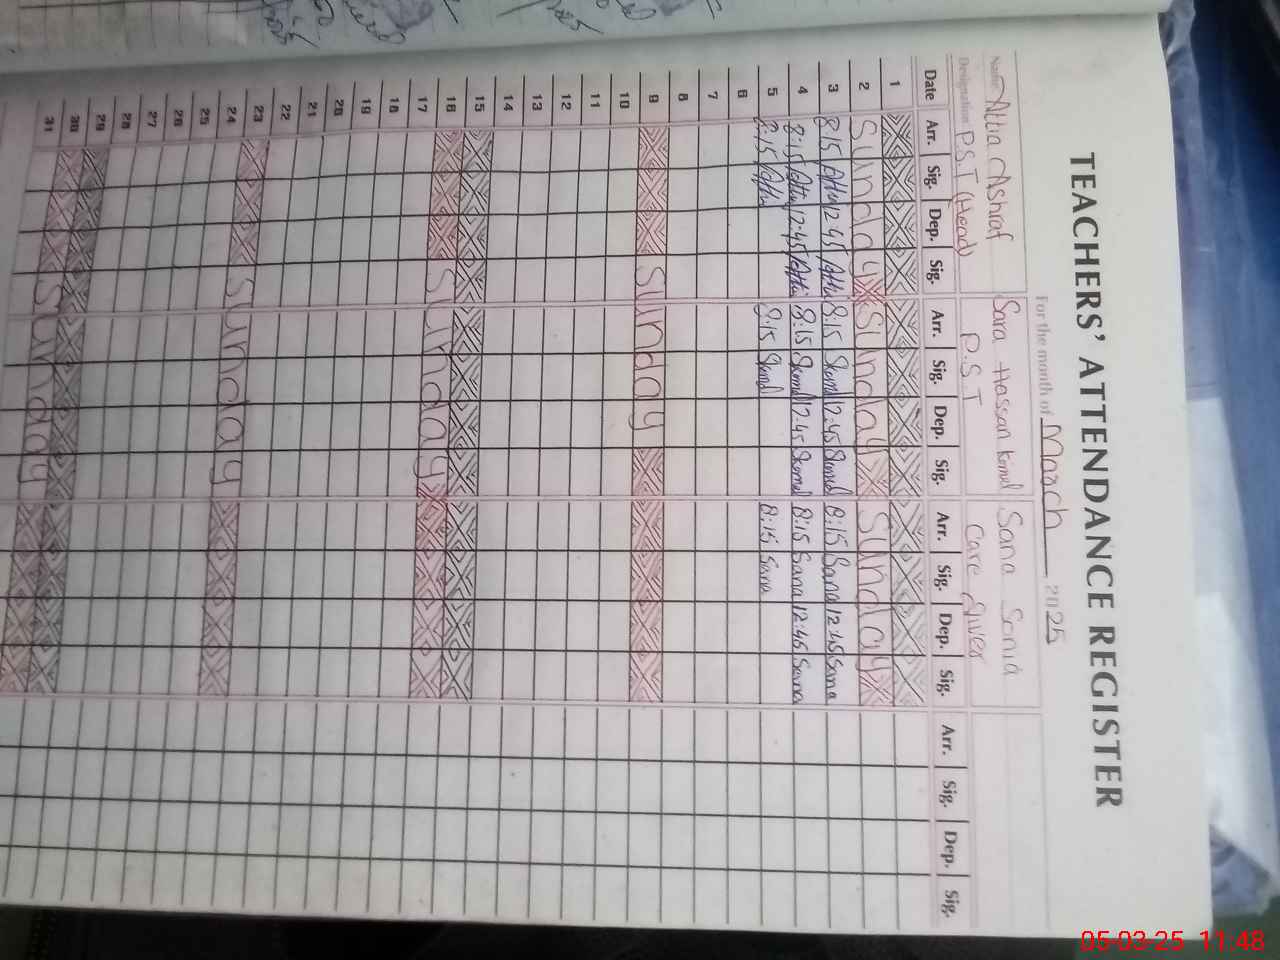 TEACHERS' ATTENDANCE REGISTER
For the month of March 2025
Name Attia Ashraf Sara Hassan Komal Sana Sonia
Designation P.S.T (Head) P.S.T Care Giver
Date Arr. Sig. Dep. Sig. Arr. Sig. Dep. Sig. Arr. Sig. Dep. Sig. Arr. Sig. Dep. Sig.
1
2 Sunday Sunday Sunday
3 8:15 12:45 8:15 12:45 8:15 Sana 12:45 Sana
4 8:15 12:45 8:15 12:45 8:15 Sana 12:45 Sana
5 8:15 8:15 8:15 Sana
6
7
8
9 Sunday
10
11
12
13
14
15
16 Sunday
17
18
19
20
21
22
23 Sunday
24
25
26
27
28
29
30 Sunday
31
05-03-25 11:48